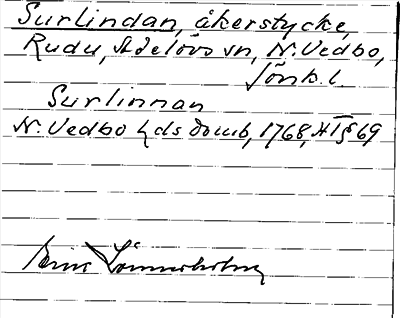 Surlindan, åkerstycke,
Rudu, Adelövs sn, N. Vedbo,
Jönk. l.
Surlinnan
N. Vedbo hds domb, 1768, HT § 69
Einar Lönnerholm